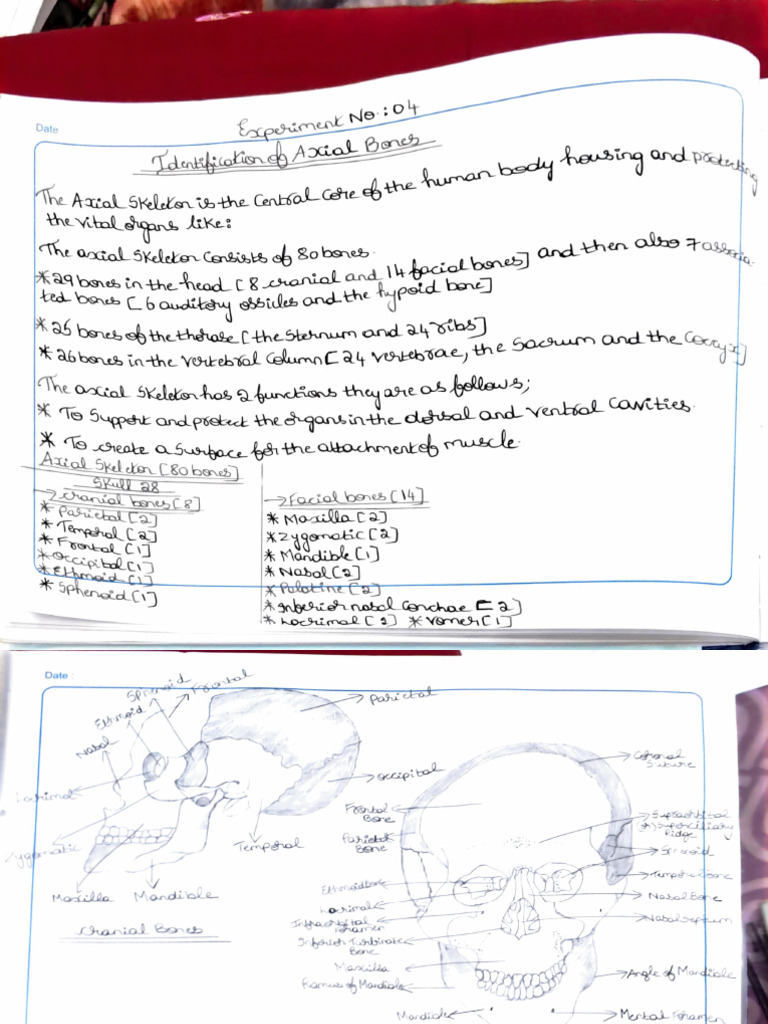 Date
Experiment No.: 04
Identification of Axial Bones
The Axial Skeleton is the Central Core of the human body housing and protecting
the vital organs like:
The axial skeleton consists of 80 bones.
* 29 bones in the head [8 cranial and 14 facial bones] and then also 7 associa-
ted bones [6 auditory ossicles and the hypoid bone]
* 25 bones of the thorase [the Sternum and 24 ribs]
* 26 bones in the vertebral column [24 vertebrae, the Sacrum and the Coccyx]
The axial skeleton has 2 functions they are as follows;
* To Support and protect the organs in the dorsal and ventral cavities.
* To create a surface for the attachment of muscle.
Axial Skeleton [80 bones]
Skull 28
→ cranial bones [8]
* Parietal [2]
* Temporal [2]
* Frontal [1]
* Occipital [1]
* Ethmoid [1]
* Sphenoid [1]
→ Facial bones [14]
* Maxilla [2]
* Zygomatic [2]
* Mandible [1]
* Nasal [2]
* Palatine [2]
* Inferior nasal conchae [2]
* Lacrimal [2] * Vomer [1]
Date :
Sphenoid
Frontal
Ethmoid
Nasal
Lacrimal
Zygomatic
Maxilla
Mandible
Temporal
Occipital
Parietal
Cranial Bones
Coronal
Suture
Frontal
Bone
Parietal
Bone
Supraorbital
(or) Superciliary
Ridge
Sphenoid
Temporal bone
Ethmoid Bone
Nasal Bone
Lacrimal
Infraorbital
Foramen
Nasal Septum
Inferior Turbinate
Bone
Maxilla
Ramus of Mandible
Angle of Mandible
Mandible
Mental Foramen